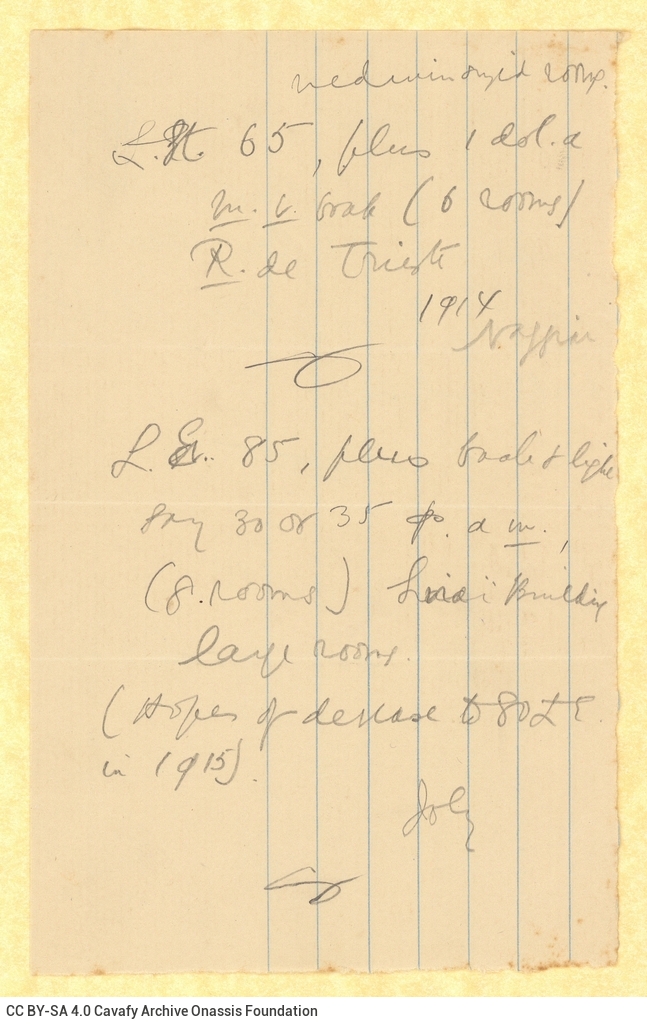 medium sized rooms.
L.St. 65, plus 1 dol. a
m. v. boab (6 rooms)
R. de Trieste
1914
L.E. 85, plus boab & light
say 30 or 35 p. a m.,
(8. rooms) Building
large rooms.
(Hopes of decrease to 80 L E.
in 1915).
CC BY-SA 4.0 Cavafy Archive Onassis Foundation